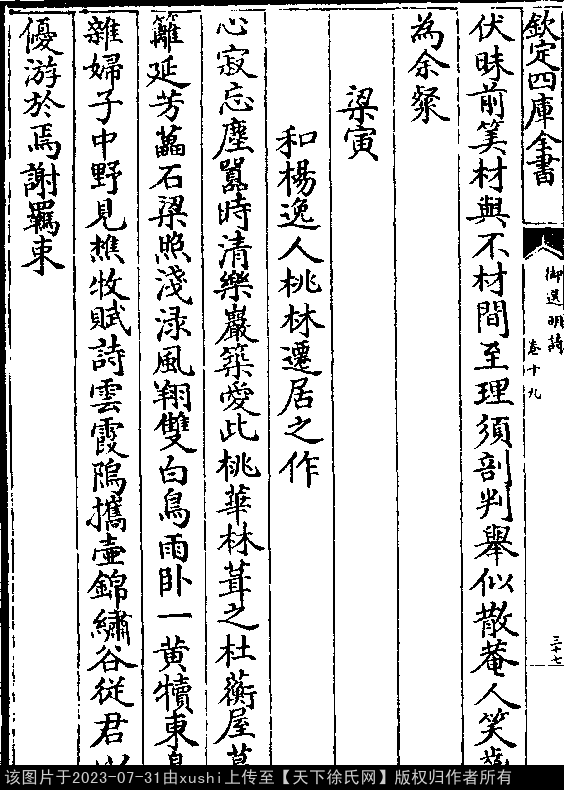 欽定四庫全書
御選明詩
卷十九
三十七
伏昧前筭材與不材間至理須剖判舉似散菴人笑
為余粲
梁寅
和楊逸人桃林遷居之作
心寂忘塵囂時清樂巖築愛此桃華林葺之杜蘅屋
籬延芳藟石梁照淺渌風翔雙白鳥雨卧一黄犢東
雜婦子中野見樵牧賦詩雲霞隖攜壺錦繡谷從君
優游於焉謝羈束
该图片于2023-07-31由xushi上传至【天下徐氏网】版权归作者所有